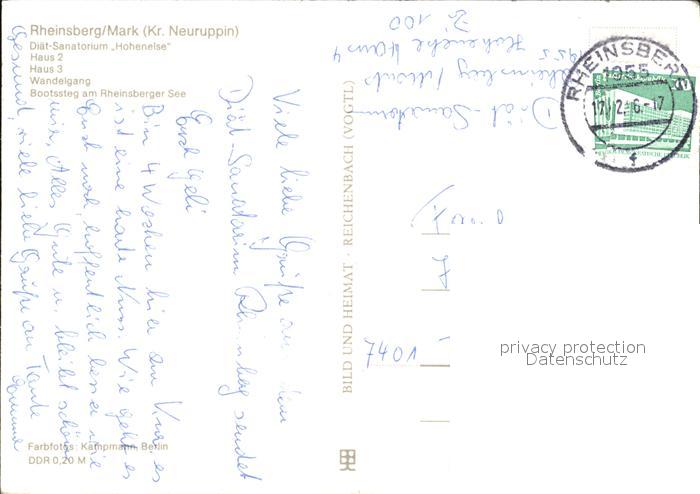 Rheinsberg/Mark (Kr. Neuruppin)
Diät-Sanatorium „Hohenelse“
Haus 2
Haus 3
Wandelgang
Bootssteg am Rheinsberger See
Viele liebe Grüße aus dem
Diät-Sanatorium Rheinsberg sendet
Euch
Bin 4 Wochen hier zur Kur, es
ist eine harte Nuss. Wie geht es
Euch noch, hoffentlich besser wie
mir. Alles Gute u. bleibt schön
gesund, viele liebe Grüße an Tante
Farbfotos: Kampmann, Berlin
DDR 0,20 M
BILD UND HEIMAT · REICHENBACH (VOGTL)
Diät-Sanatorium
1955 Hohenelse Haus 4
Zi 100
RHEINSBERG
1955
17.
7401
privacy protection
Datenschutz